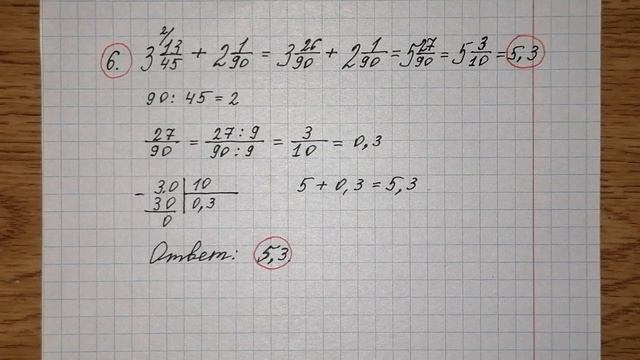 6. 3 13/45 + 2 1/90 = 3 26/90 + 2 1/90 = 5 27/90 = 5 3/10 = 5,3
90 : 45 = 2
27/90 = 27 : 9/90 : 9 = 3/10 = 0,3
- 3.0 | 10
30 | 0,3
0
5 + 0,3 = 5,3
Ответ: 5,3.